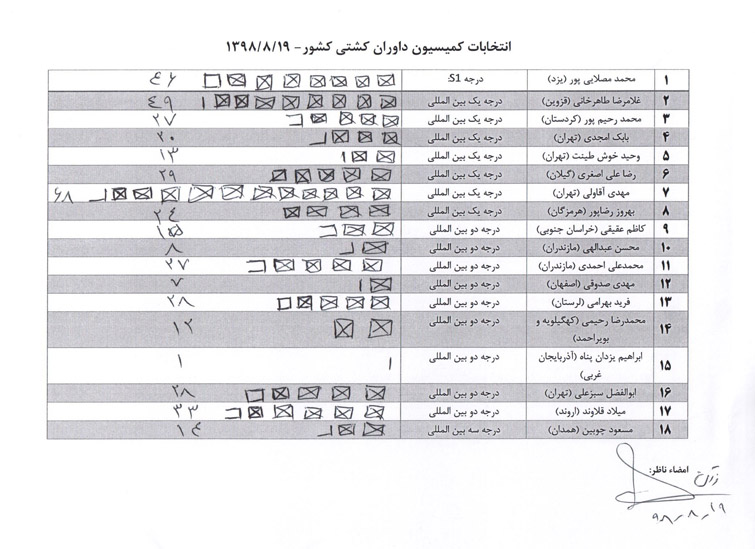 انتخابات کمیسیون داوران کشتی کشور - ۱۳۹۸/۸/۱۹
۱ محمد مصلایی پور (یزد) درجه S1 ٤٦
۲ غلامرضا طاهرخانی (قزوین) درجه یک بین المللی ٤٩
۳ محمد رحیم پور (کردستان) درجه یک بین المللی ۲۷
۴ بابک امجدی (تهران) درجه یک بین المللی ۲۰
۵ وحید خوش طینت (تهران) درجه یک بین المللی ۱۳
۶ رضا علی اصغری (گیلان) درجه یک بین المللی ۲۹
۷ مهدی آقاولی (تهران) درجه یک بین المللی ٦٨
۸ بهروز رضاپور (هرمزگان) درجه یک بین المللی ۲٤
۹ کاظم عقیقی (خراسان جنوبی) درجه دو بین المللی ۱۵
۱۰ محسن عبدالهی (مازندران) درجه دو بین المللی ۸
۱۱ محمدعلی احمدی (مازندران) درجه دو بین المللی ۲۷
۱۲ مهدی صدوقی (اصفهان) درجه دو بین المللی ۷
۱۳ فرید بهرامی (لرستان) درجه دو بین المللی ۲۸
۱۴ محمدرضا رحیمی (کهگیلویه و درجه دو بین المللی ۱۲
بویراحمد)
۱۵ ابراهیم یزدان پناه (آذربایجان درجه دو بین المللی ۱
غربی)
۱۶ ابوالفضل سبزعلی (تهران) درجه دو بین المللی ۲۸
۱۷ میلاد قلاوند (اروند) درجه دو بین المللی ۳۳
۱۸ مسعود چوبین (همدان) درجه سه بین المللی ۱٤
امضاء ناظر:
۹۸/۸/۱۹